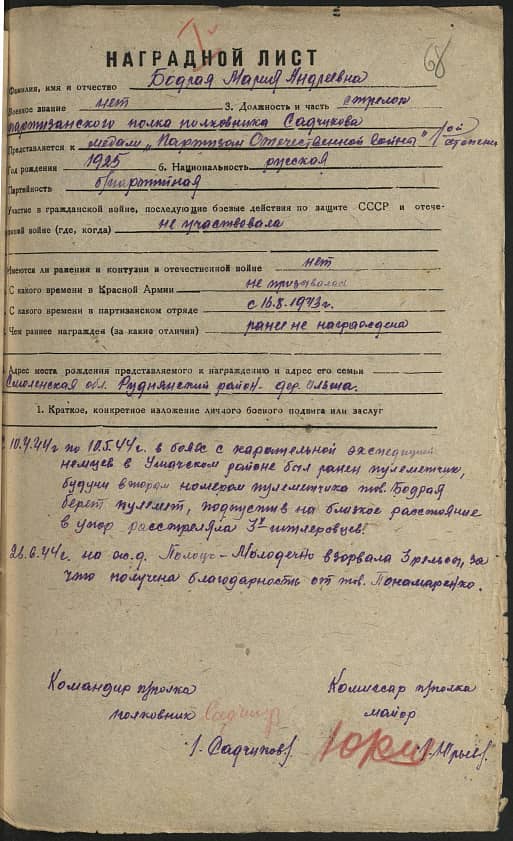 I
68
НАГРАДНОЙ ЛИСТ
Фамилия, имя и отчество Бодрая Мария Андреевна
Военное звание нет 3. Должность и часть стрелок
партизанского полка полковника Садчикова
Представляется к медали „Партизан Отечественной Войны" I ой степени
Год рождения 1925 6. Национальность русская
Партийность б/партийная
Участие в гражданской войне, последующие боевые действия по защите СССР и отече-
войне (где, когда) не участвовала
Имеются ли ранения и контузии в отечественной войне нет
С какого времени в Красной Армии не призывалась
С какого времени в партизанском отряде с 16.8.1943г.
Чем раннее награжден (за какие отличия) ранее не награждена
Адрес места рождения представляемого к награждению и адрес его семьи
Смоленская обл. Руднянский район- дер.
1. Краткое, конкретное изложение личного боевого подвига или заслуг
С 10.4.44г по 10.5.44г. в боях с карательной экспедицией
немцев в Ушачском районе был ранен пулеметчик,
будучи вторым номером пулеметчика тов. Бодрая
берет пулемет, подпустив на близкое расстояние
в упор расстреляла 3х гитлеровцев.
26.6.44г. на ж.д. Полоцк-Молодечно взорвала 3 рельса, за
что получена благодарность от тов. Понамаренко.
Командир п/полка Комиссар п/полка
полковник майор
/. Садчиков/.